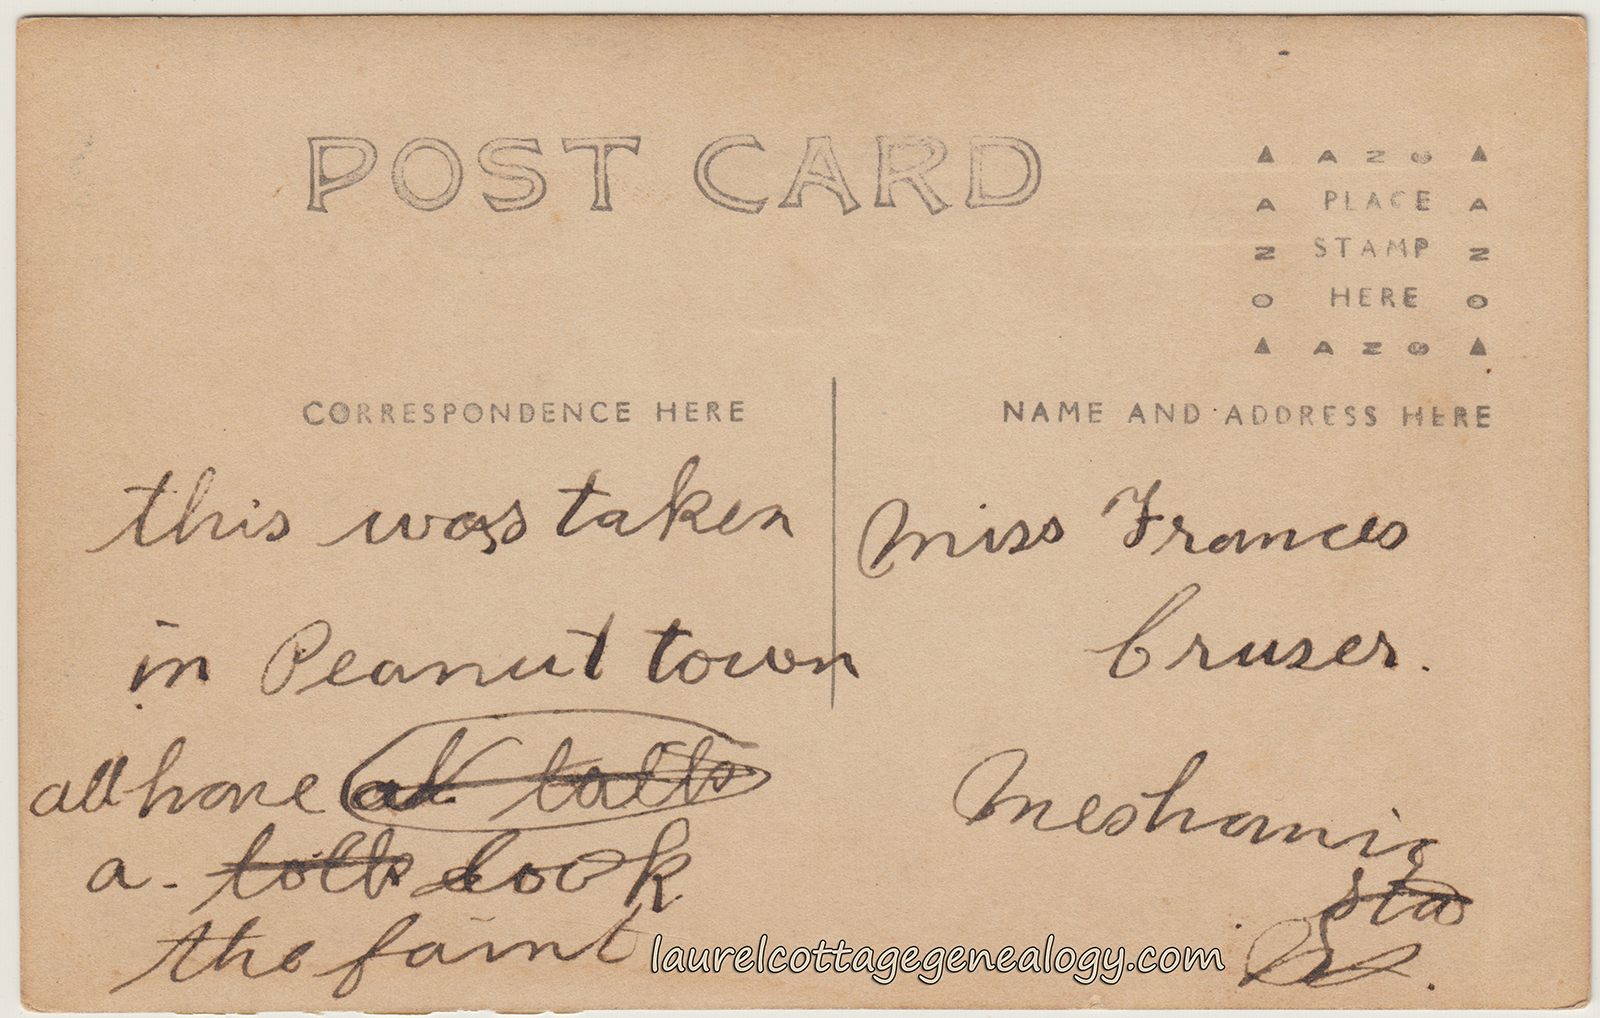 POST CARD
AZO
PLACE
STAMP
HERE
AZO
AZO
AZO
CORRESPONDENCE HERE
this was taken
in Peanut town
all have
a. look
the faint
NAME AND ADDRESS HERE
Miss Frances
Cruser.
Meshanic
sta
laurelcottagegenealogy.com